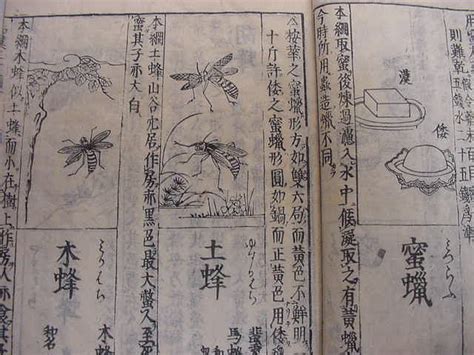 漢
倭
蜜蠟
みつらふ
本綱取蜜後煉過濾入水中候凝取之有黃蠟
今時所用蟲造蠟不同
按華之蜜蠟形方如雙六局而黃色不鮮明
十斤許倭之蜜蠟形圓如鍋而正黃色用
土蜂
本綱土蜂山谷穴居作房赤黑色最大螫人至死
蜜其子亦大白
木蜂
本綱木蜂似土蜂而小在樹上作房人亦食其子